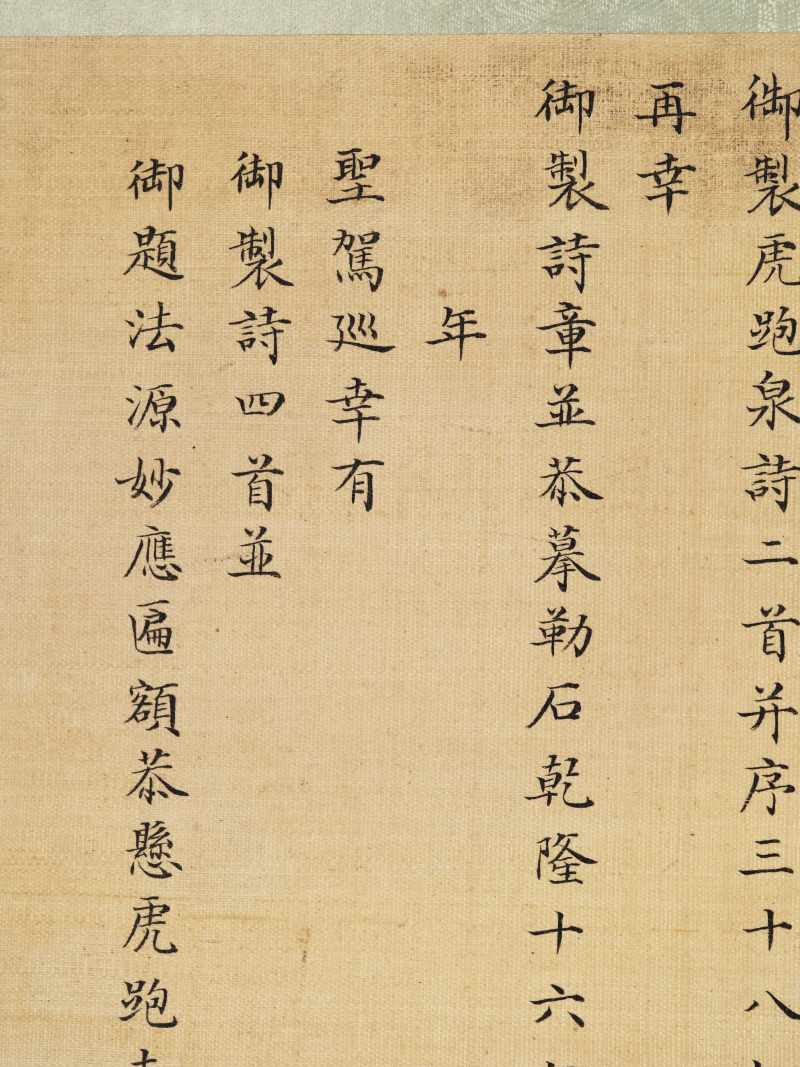 御製虎跑泉詩二首并序三十八
再幸
御製詩章並恭摹勒石乾隆十六
年
聖駕巡幸有
御製詩四首並
御題法源妙應匾額恭懸虎跑